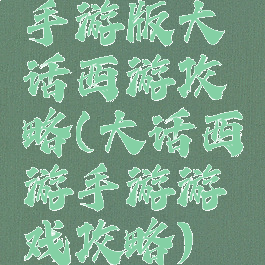 手游版大
话西游攻
略(大话西
游手游游
戏攻略)